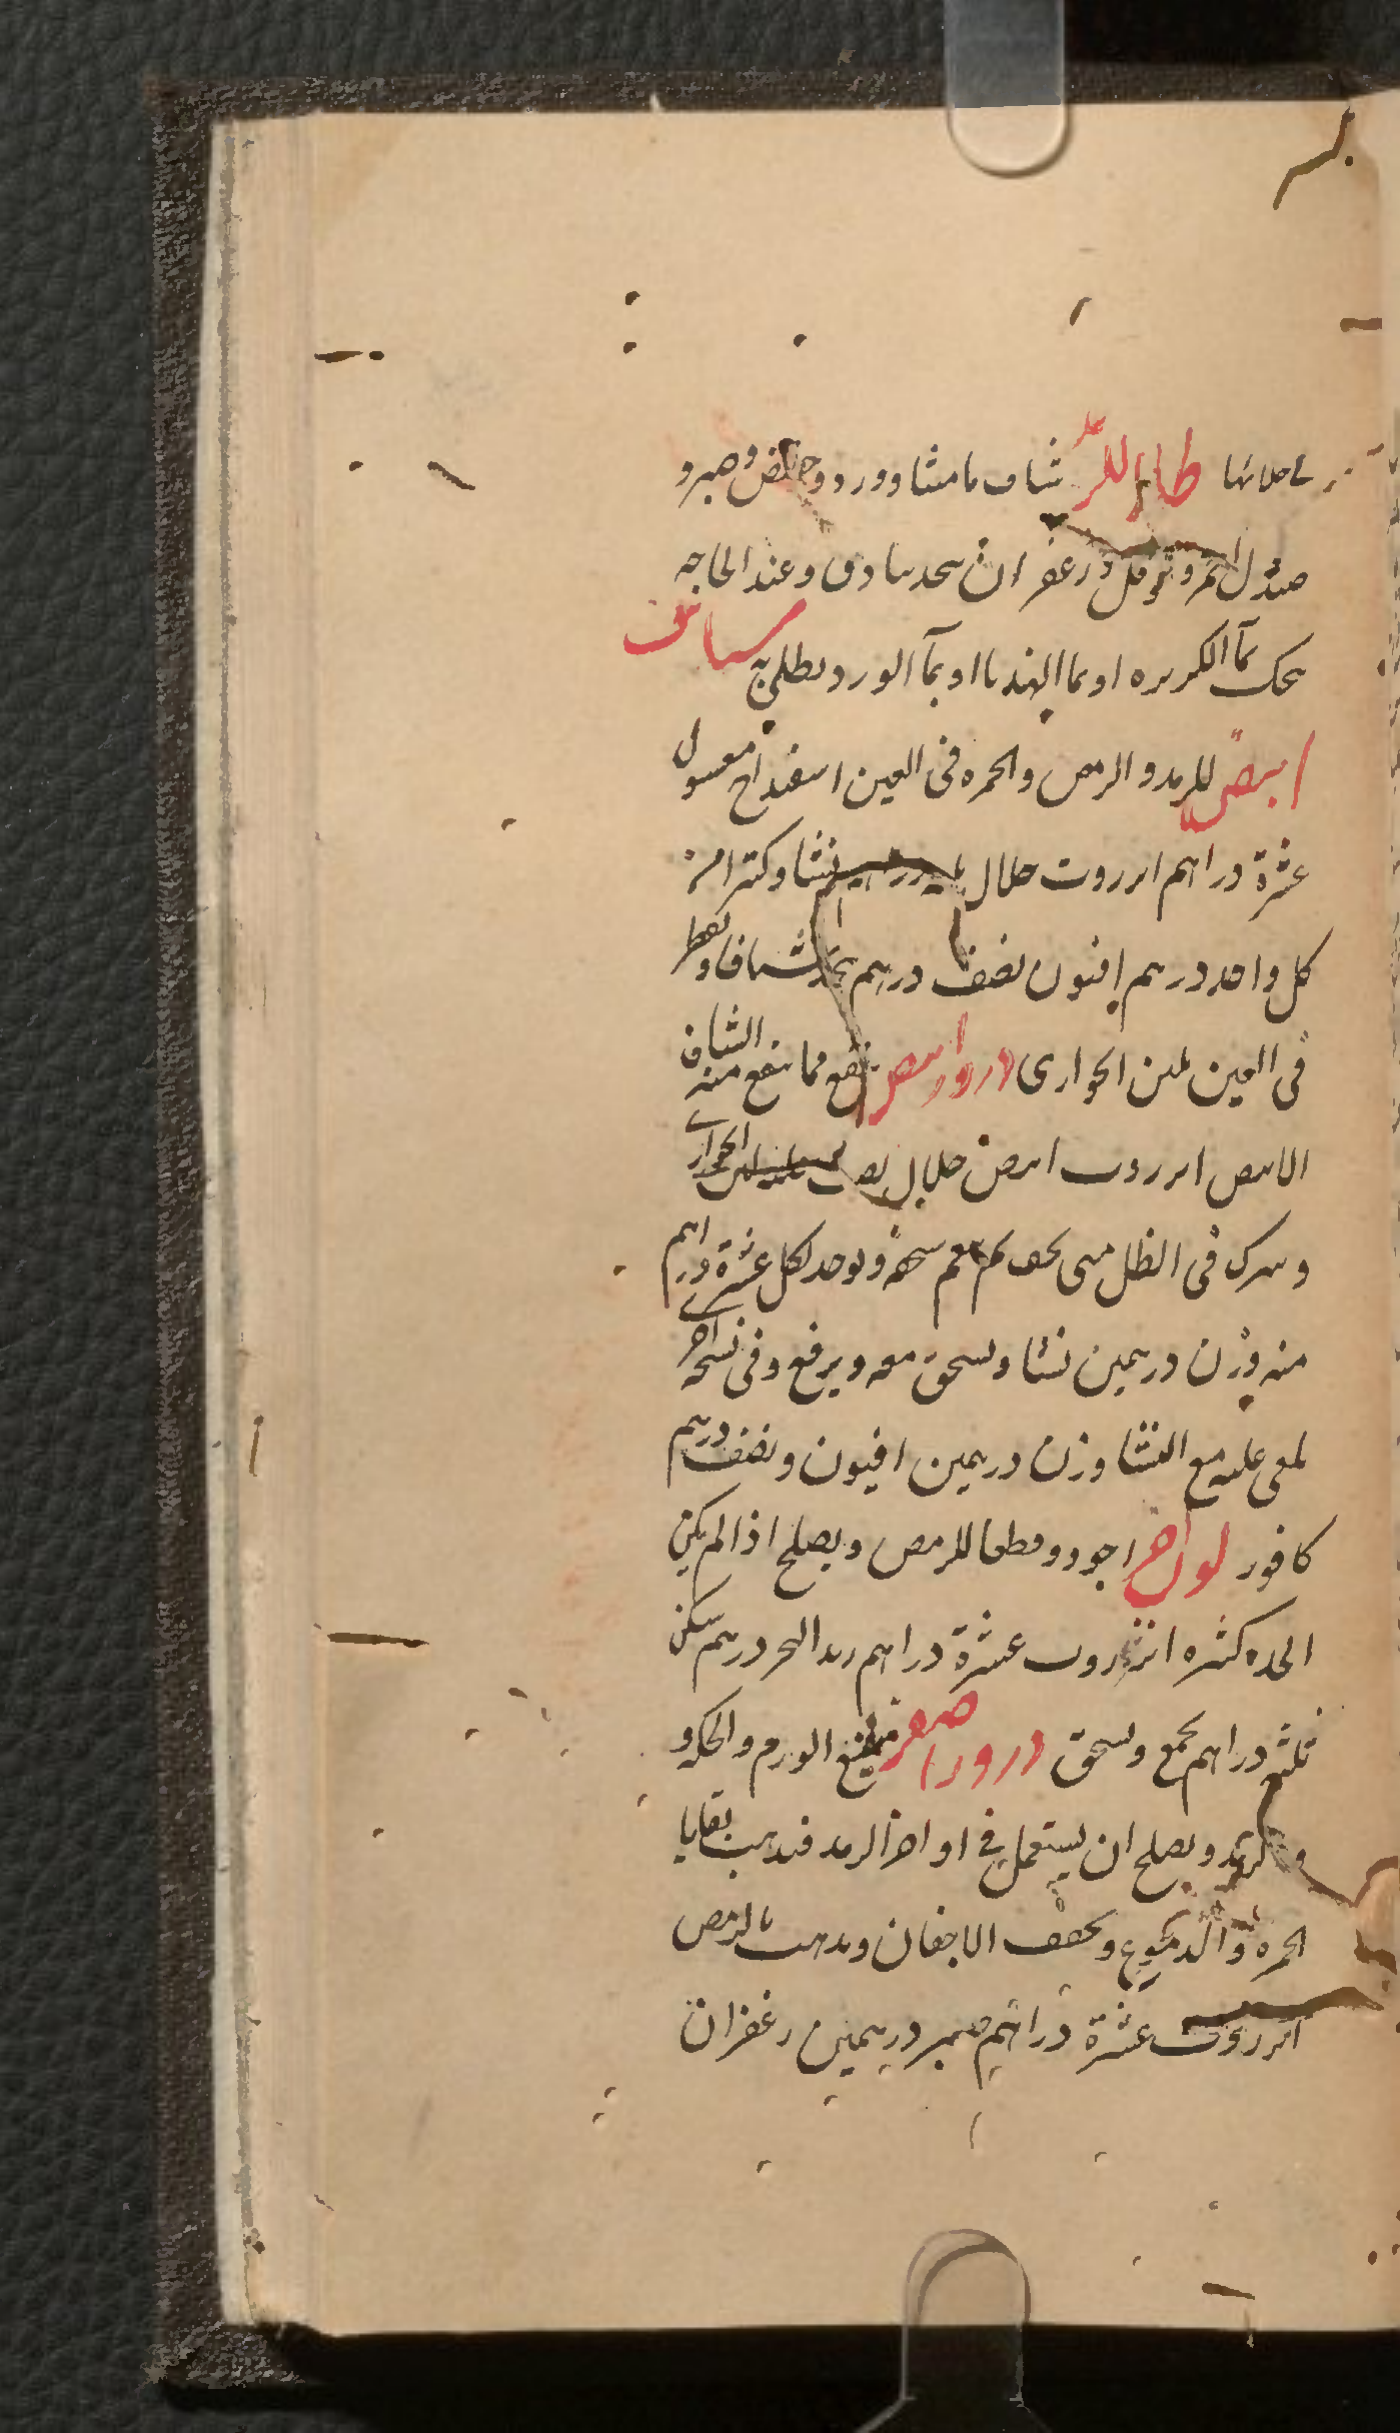 في حالاتها طلا للرمد شياف مامیثا وورد وحضض وصبر و
صندل احمر وفوفل وزعفران يتخذ بنادق وعند الحاجه
يحك بمآ الكزبره او بما الهندبا او بمآ الورد ويطلى به شياف
ابيض للرمد والرمص والحمره فى العين اسفيداج مغسول
عشرة دراهم انزروت حلال نشا وكثيرا من
كل واحد درهم افيون نصف درهم يتخذ شيافا ويقطر
فى العين بلبن الجوارى ذرور ابيض ينفع مما ينفع منه الشياف
الابيض انزروت ابيض حلال بلبن الجوارى
ويترك فى الظل حتى يجف ثم ينعم سحقه ويوخذ لكل عشرة دراهم
منه وزن درهمين نشا ويسحق معه ويرفع وفى نسخه اخرى
يلقى عليه مع النشا وزن درهمين افيون ونصف درهم
كافور لون اخر اجود وقطعا للرمص ويصلح اذا لم يكن
الحده كثيره انزروت عشرة دراهم زبد البحر درهم سكر
ثلثه دراهم يجمع ويسحق ذرور اصفر ينفع الورم والحكه و
ويصلح ان يستعمل في اواخر الرمد فيذهب بقايا
الحمره والدموع ويجفف الاجفان ويذهب بالرمص
انزروت عشرة دراهم صبر درهمين زعفران